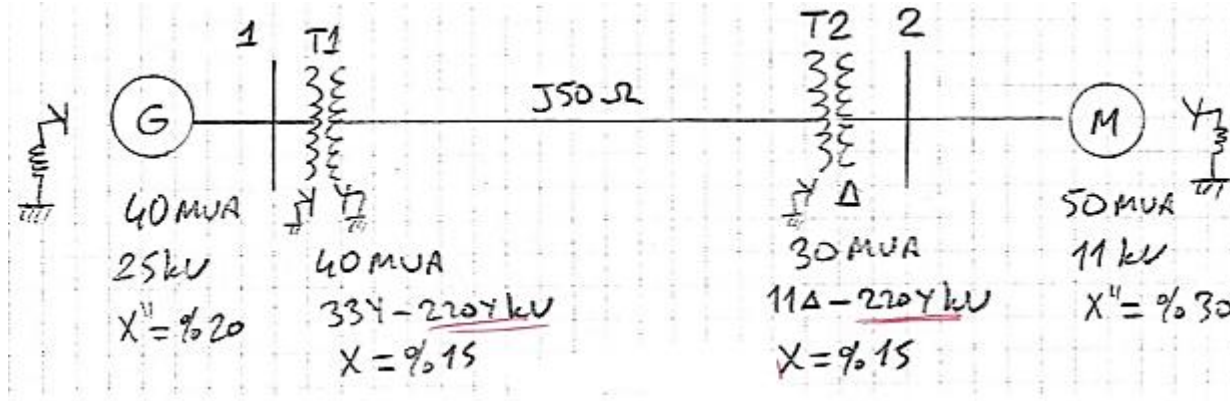 1 T1 J50Ω T2 2
G M
Y Y Y Y Δ Y
40 MVA
25kV
X"=%20
40 MVA
33Y-220Y kV
X=%15
30 MVA
11Δ-220Y kV
X=%15
50 MVA
11 kV
X"=%30